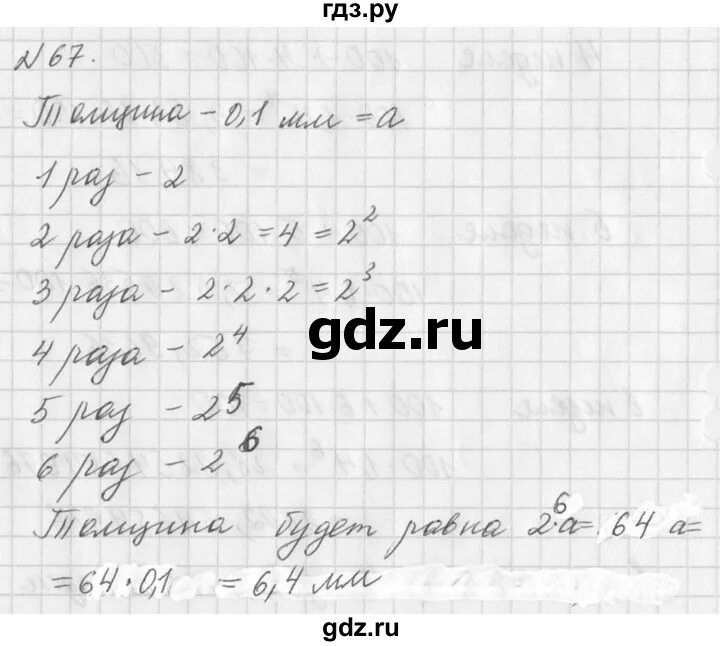 гдз.ру
№67.
Толщина - 0,1 мм = a
1 раз - 2
2 раза - 2·2 = 4 = 2²
3 раза - 2·2·2 = 2³
gdz.ru
4 раза - 2⁴
5 раз - 2⁵
6 раз - 2⁶
Толщина будет равна 2⁶·a = 64 a =
= 64·0,1 = 6,4 мм
gdz.ru